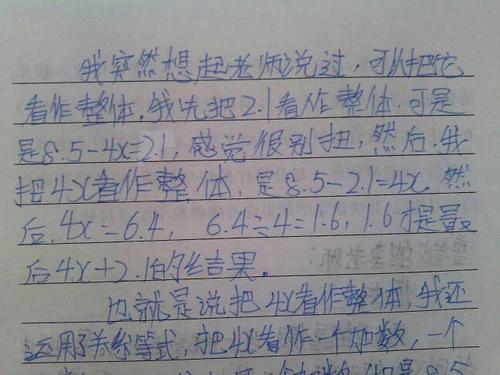 我突然想起老师说过，可以把它
看作整体，我先把2.1看作整体.可是
是8.5-4x=2.1，感觉很别扭，然后.我
把4x看作整体，是8.5-2.1=4x.然
后.4x=6.4， 6.4÷4=1.6，1.6才是最
后4x+2.1的结果。
也就是说把4x看作整体，我还
运用了关系等式，把4x看作一个加数，一个